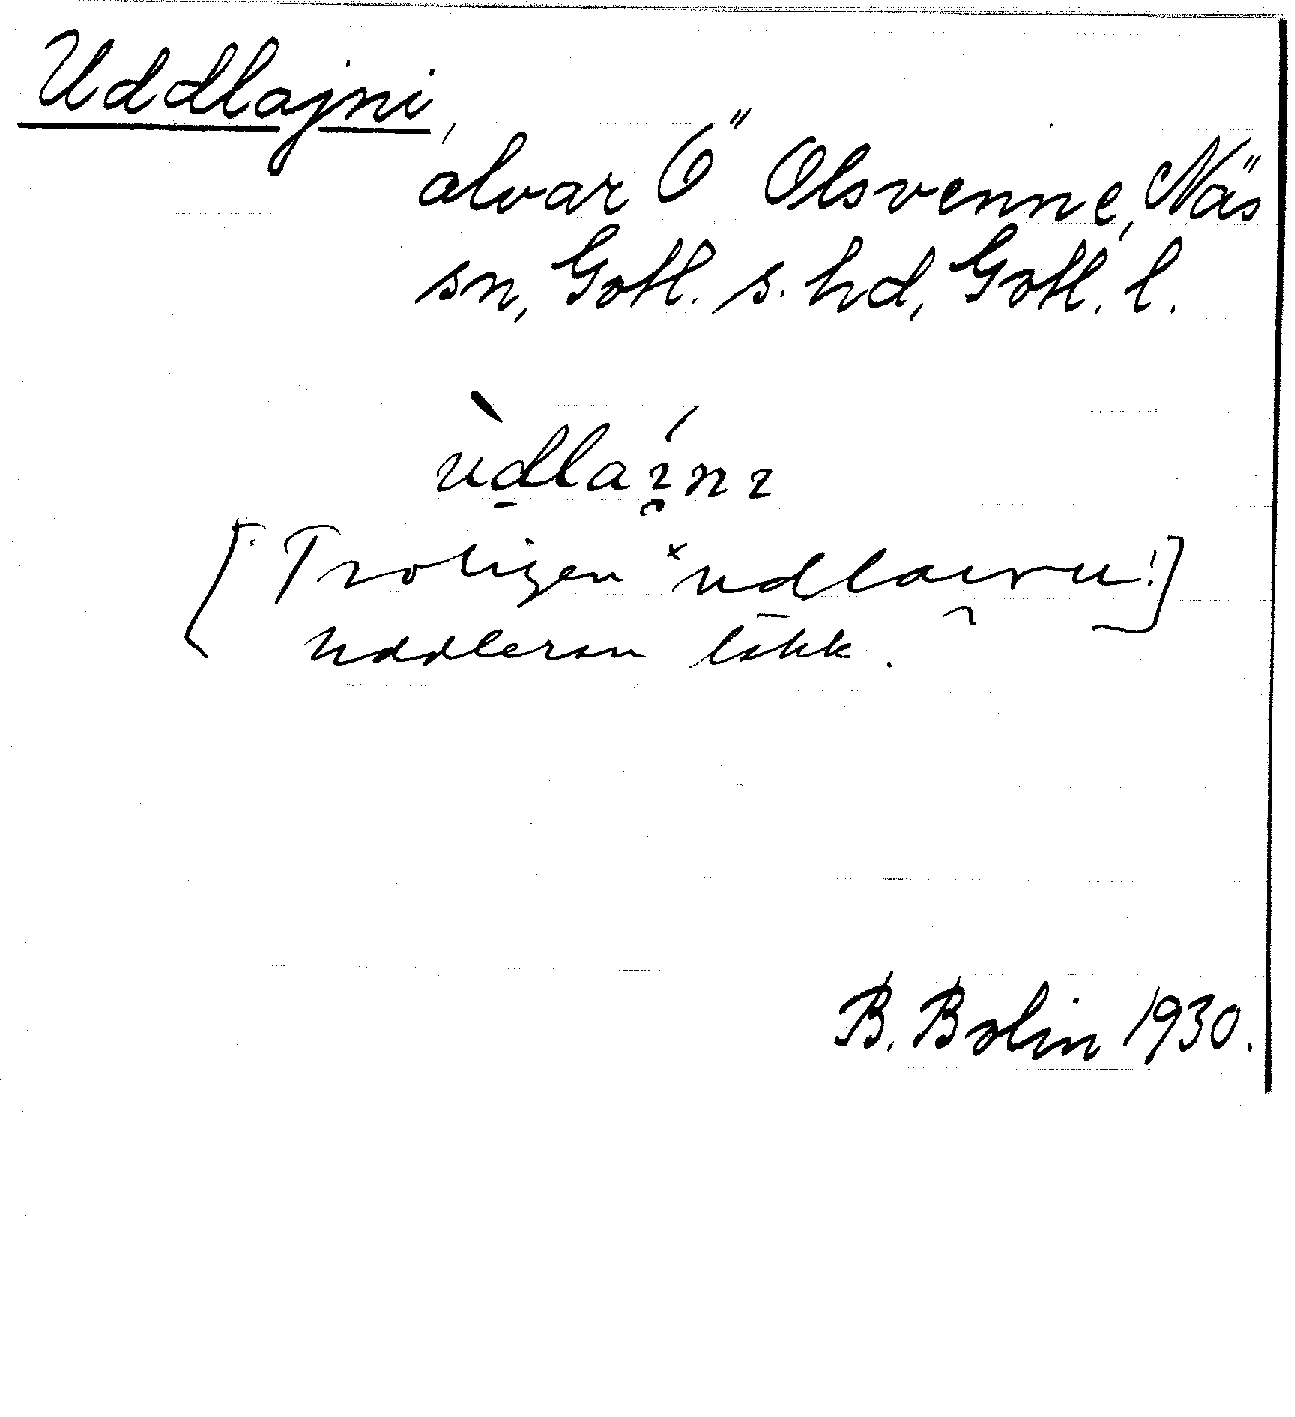 Uddlajni,
alvar Ö Olsvenne, Näs
sn, Gotl. s. hd, Gotl. l.
ùdlaı́nı
[Troligen ×udlaıru!]
Uddleran
B. Bolin 1930.